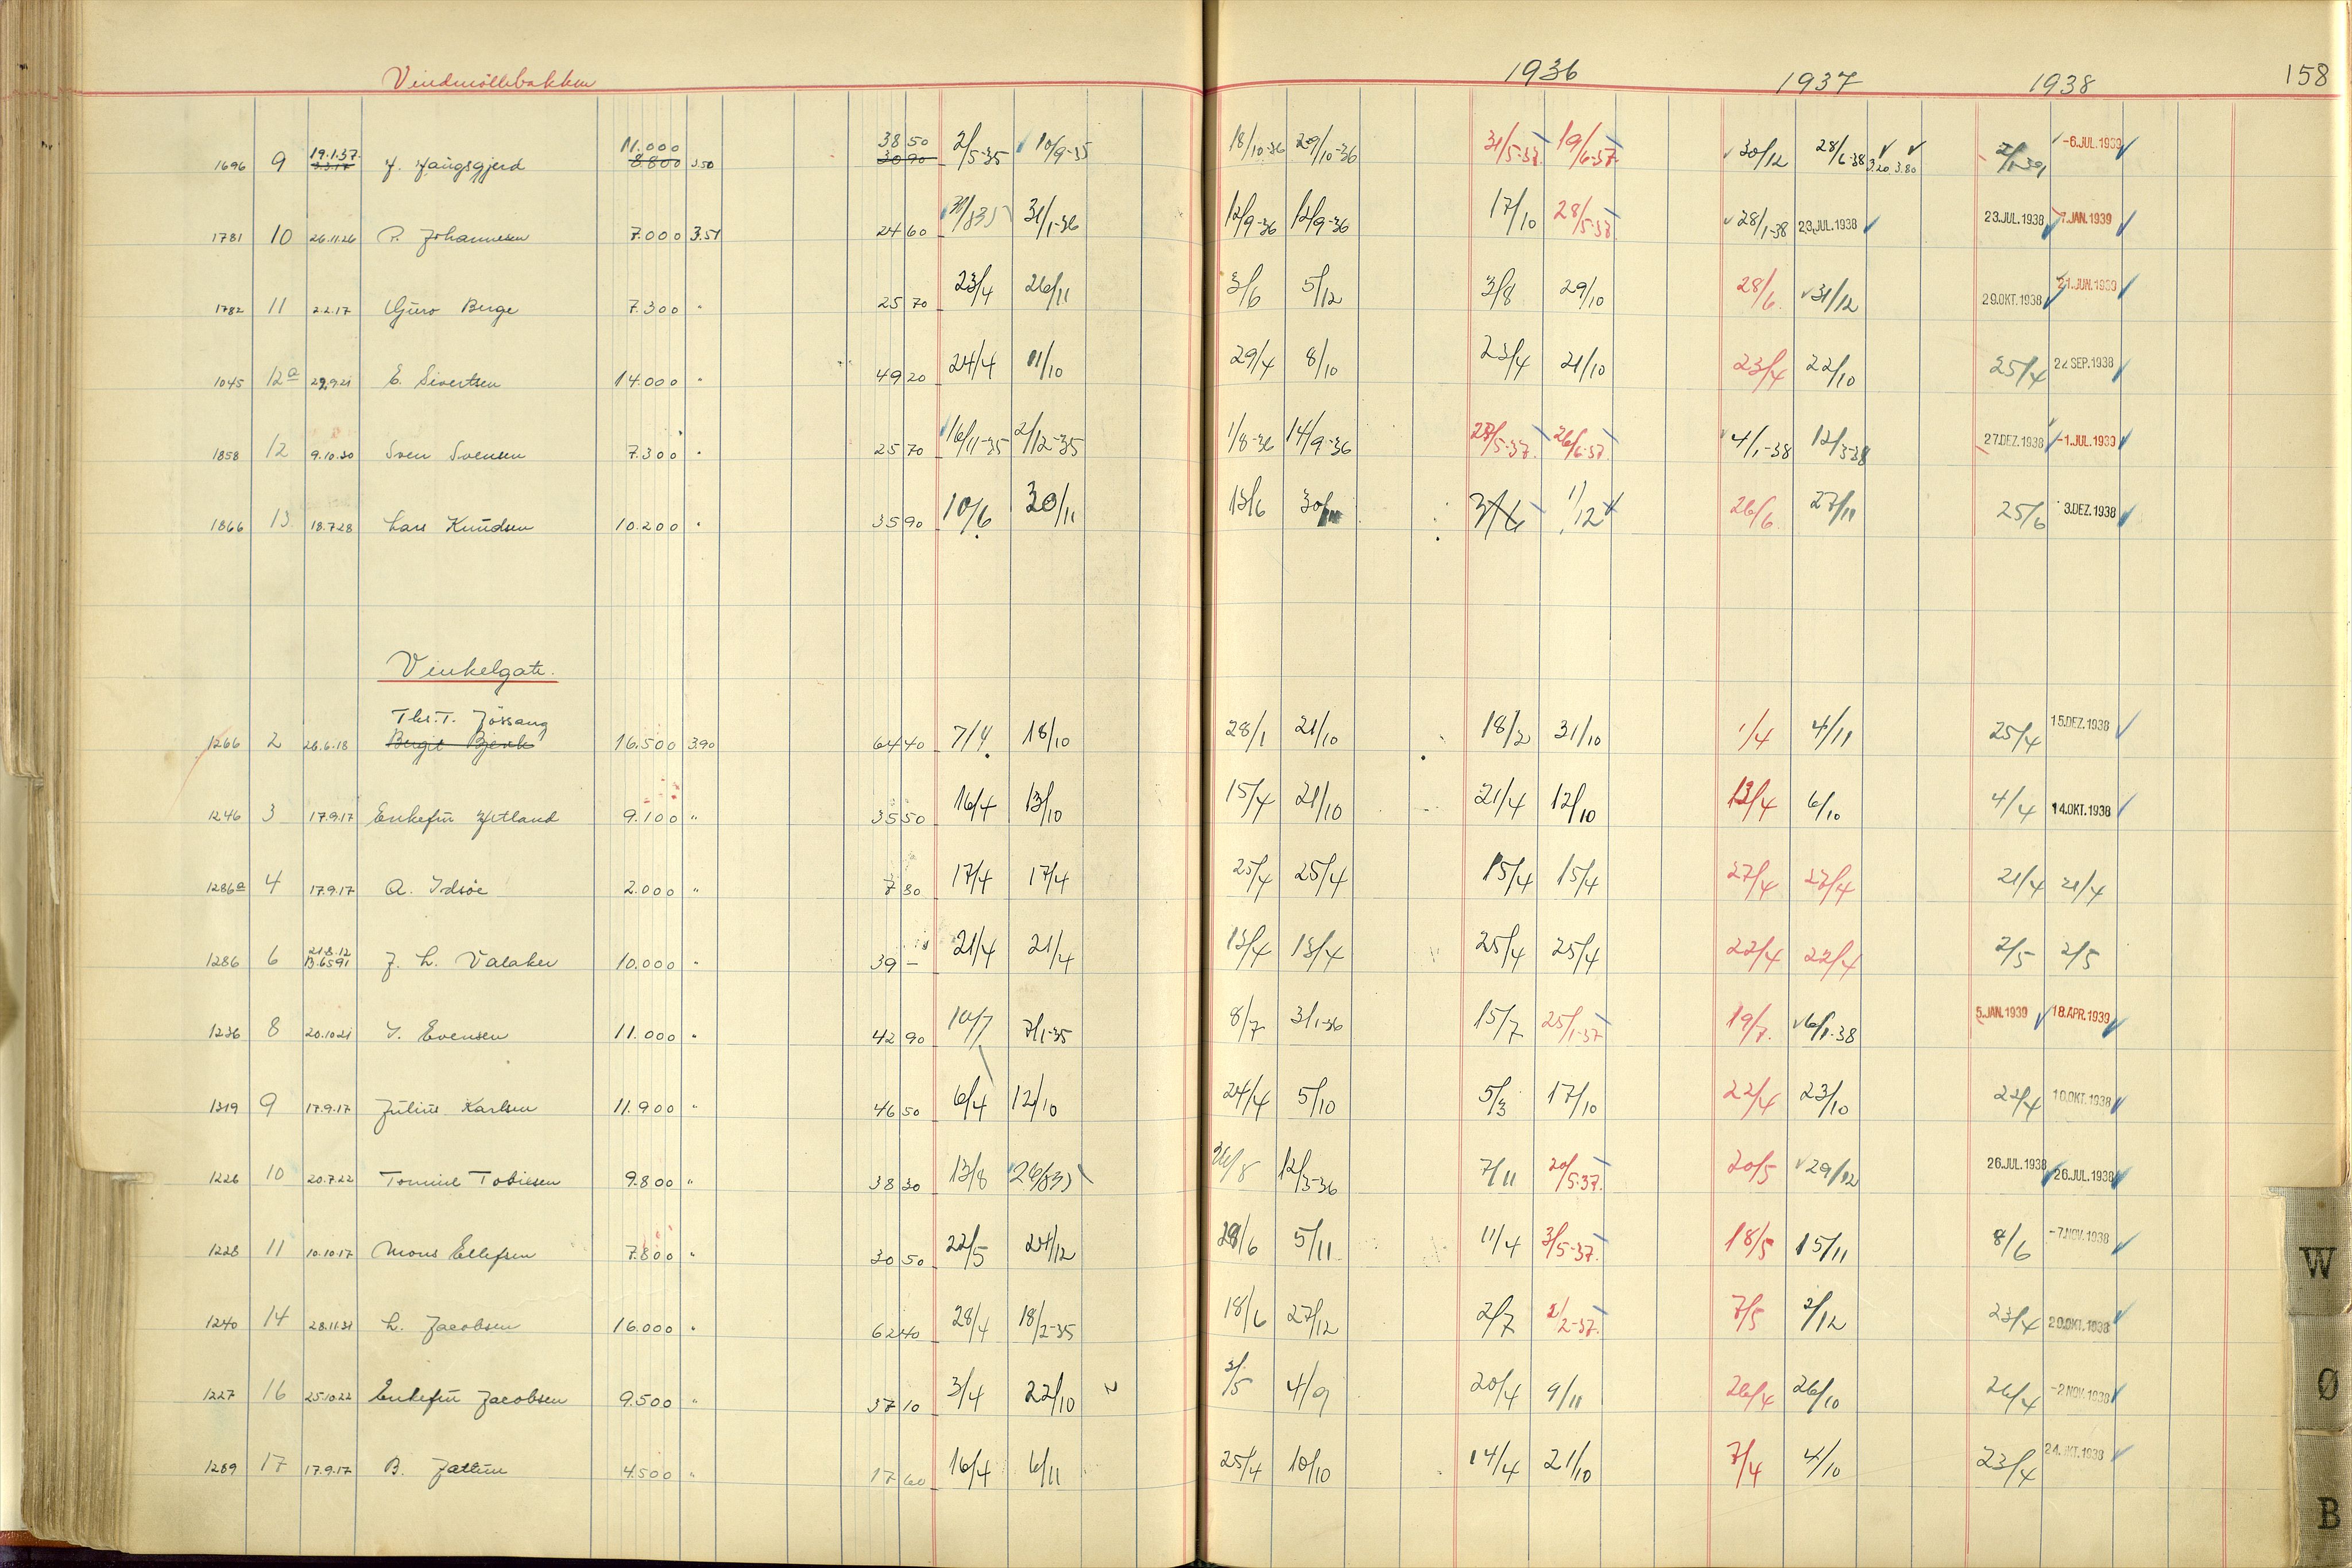 Vindmöllebakken 1936 1937 1938 158
1696 9 19.1.37 11.000 3.50 38 50 2/5-35 10/9-35 18/10-36 29/10-36 31/5-37 19/6-37 30/12 28/6-38 3.20 3.80 -6.JUL.1939
3.3.17 8.800 30 90
1781 10 26.11.26 P. Johannesen 7.000 3.51 24 60 31/1-36 12/9-36 12/9-36 17/10 28/5-37 28/1-38 23.JUL.1938 23.JUL.1938 7.JAN.1939
1782 11 2.2.17 Guro Berge 7.300 " 25 70 23/4 26/11 3/6 5/12 3/8 29/10 28/6 31/12 29.OKT.1938 21.JUN.1939
1045 12a 29.9.21 E. Sivertsen 14.000 " 49 20 24/4 11/10 29/4 8/10 23/4 21/10 23/4 22/10 25/4 22 SEP.1938
1858 12 9.10.30 Sven Svensen 7.300 " 25 70 16/11-35 2/12-35 1/8-36 14/9-36 28/5-37 26/6-37 4/1-38 12/3-38 27.DEZ.1938 -1.JUL.1939
1866 13 18.7.28 Lars Knudsen 10.200 " 35 90 10/6 30/11 13/6 30/11 3/6 1/12 26/6 27/11 25/6 3.DEZ.1938
Vinkelgate.
Ths. T. Jössang
1266 2 26.6.18 Bergit Bjerk 16.500 3.90 64 40 7/4 18/10 28/1 21/10 18/2 31/10 1/4 4/11 25/4 15.DEZ.1938
1246 3 17.9.17 Enkefru Hetland 9.100 " 35 50 16/4 13/10 15/4 21/10 21/4 12/10 13/4 6/10 4/4 14.OKT.1938
1286a 4 17.9.17 A. Idsöe 2.000 " 7 80 17/4 17/4 25/4 25/4 15/4 15/4 27/4 27/4 21/4 21/4
1286 6 21.8.12 J. L. Valaker 10.000 " 39 — 21/4 21/4 13/4 13/4 25/4 25/4 22/4 22/4 2/5 2/5
1236 8 20.10.21 I. Evensen 11.000 " 42 90 10/7 7/1-35 8/7 3/1-36 15/7 25/1-37 19/7 6/1-38 5.JAN.1939 18.APR.1939
1319 9 17.9.17 Julius Karlsen 11.900 " 46 50 6/4 12/10 24/4 5/10 5/3 17/10 22/4 23/10 22/4 10.OKT.1938
1226 10 20.7.22 Tomine Tobiesen 9.800 " 38 30 13/8 26/8 12/3-36 7/11 20/5-37 20/5 29/12 26.JUL.1938 26.JUL.1938
1228 11 10.10.17 Mons Ellefsen 7.800 " 30 50 22/5 24/12 29/6 5/11 11/4 3/5-37 18/5 15/11 8/6 -7.NOV.1938
1240 14 28.11.31 L. Jacobsen 16.000 " 62 40 28/4 18/2-35 18/6 27/12 2/7 2/2-37 7/5 2/12 23/4 20.OKT.1938
1227 16 25.10.22 Enkefru Jacobsen 9.500 " 37 10 3/4 22/10 2/5 4/9 20/4 9/11 26/4 26/10 26/4 -2.NOV.1938
1289 17 17.9.17 B. Jattun 4.500 " 17 60 16/4 6/11 25/4 10/10 14/4 21/10 7/4 4/10 23/4 24.OKT.1938
W
Ø
B